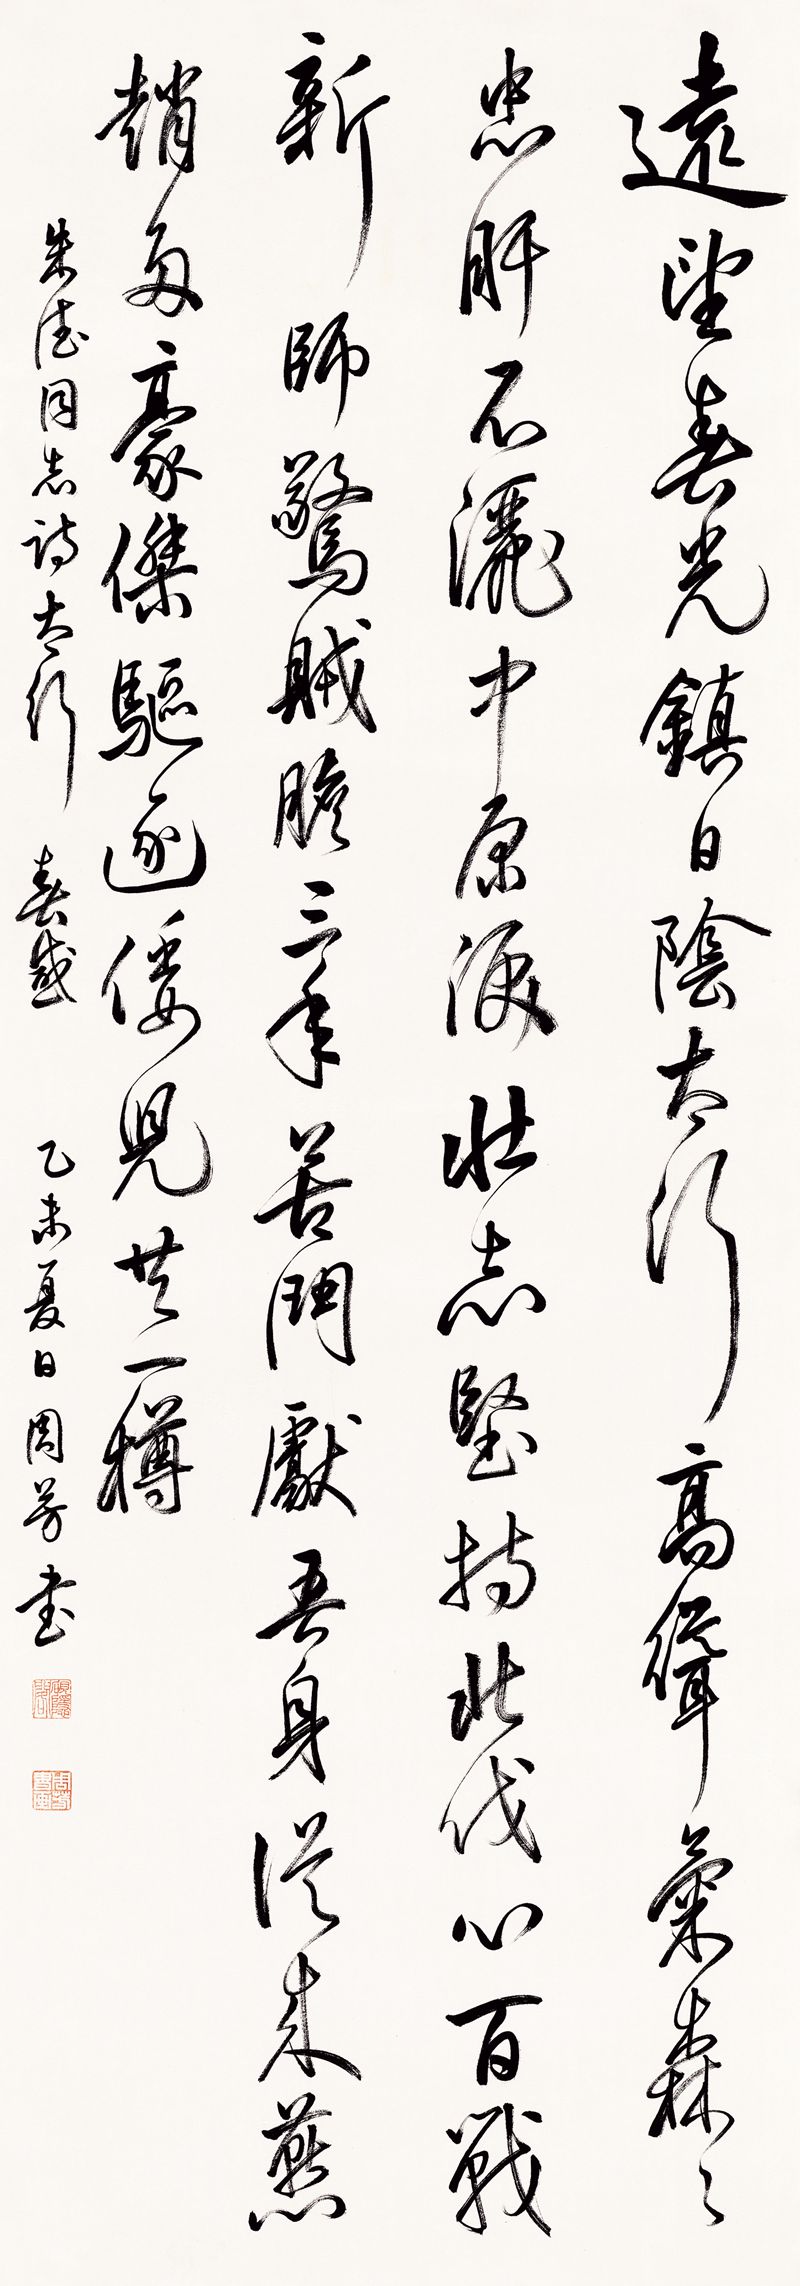 遠望春光鎮日陰太行高聳氣森々
忠肝不灑中原淚壯志堅持北伐心百戰
新師驚賊膽三年苦鬥獻吾身從來燕
趙多豪傑驅逐倭兒共一樽
朱德同志詩太行春感 乙未夏日周芳書